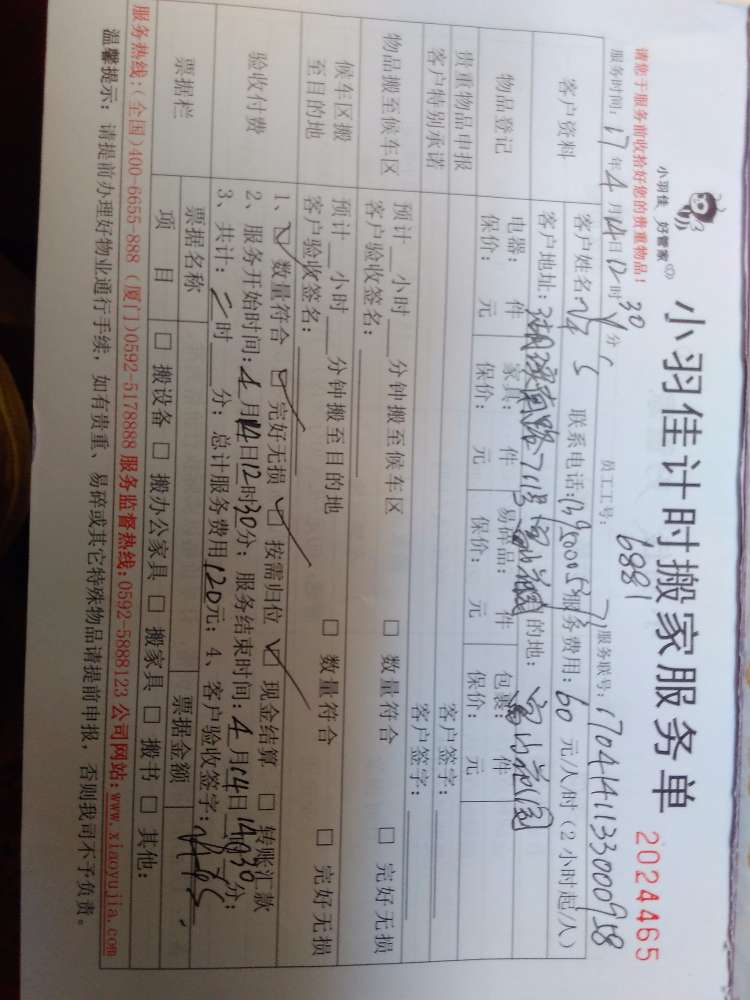 小羽佳 好管家
小羽佳计时搬家服务单
2024465
请您于服务前收拾好您的贵重物品！
服务时间：17年4月14日12时30分
员工工号：6881
服务联号：1704141133000958
客户资料
客户姓名：
联系电话：
服务费用：60元/人/时（2小时起/人）
客户地址：
目的地：
物品登记
电器： 件 家具： 件 易碎品： 件 包裹： 件
保价： 元 保价： 元 保价： 元 保价： 元
贵重物品申报
客户签字：
客户特别承诺
客户签字：
物品搬至候车区
预计__小时__分钟搬至候车区 □ 数量符合 □ 完好无损
客户验收签名：
候车区搬至目的地
预计__小时__分钟搬至目的地 □ 数量符合 □ 完好无损
客户验收签名：
验收付费
1、☑ 数量符合 ☑ 完好无损 ☑ 按需归位 ☑ 现金结算 □ 转账汇款
2、服务开始时间：4月14日12时30分；服务结束时间：4月14日14时30分；
3、共计：二时__分；总计服务费用120元；4、客户验收签字：
票据栏
票据名称 票据金额
项目 □ 搬设备 □ 搬办公家具 □ 搬家具 □ 搬书 □ 其他：
服务热线：（全国）400-6655-888（厦门）0592-5178888 服务监督热线：0592-5888123 公司网站：www.xiaoyujia.com
温馨提示：请提前办理好物业通行手续，如有贵重、易碎或其它特殊物品请提前申报，否则我司不予负责。